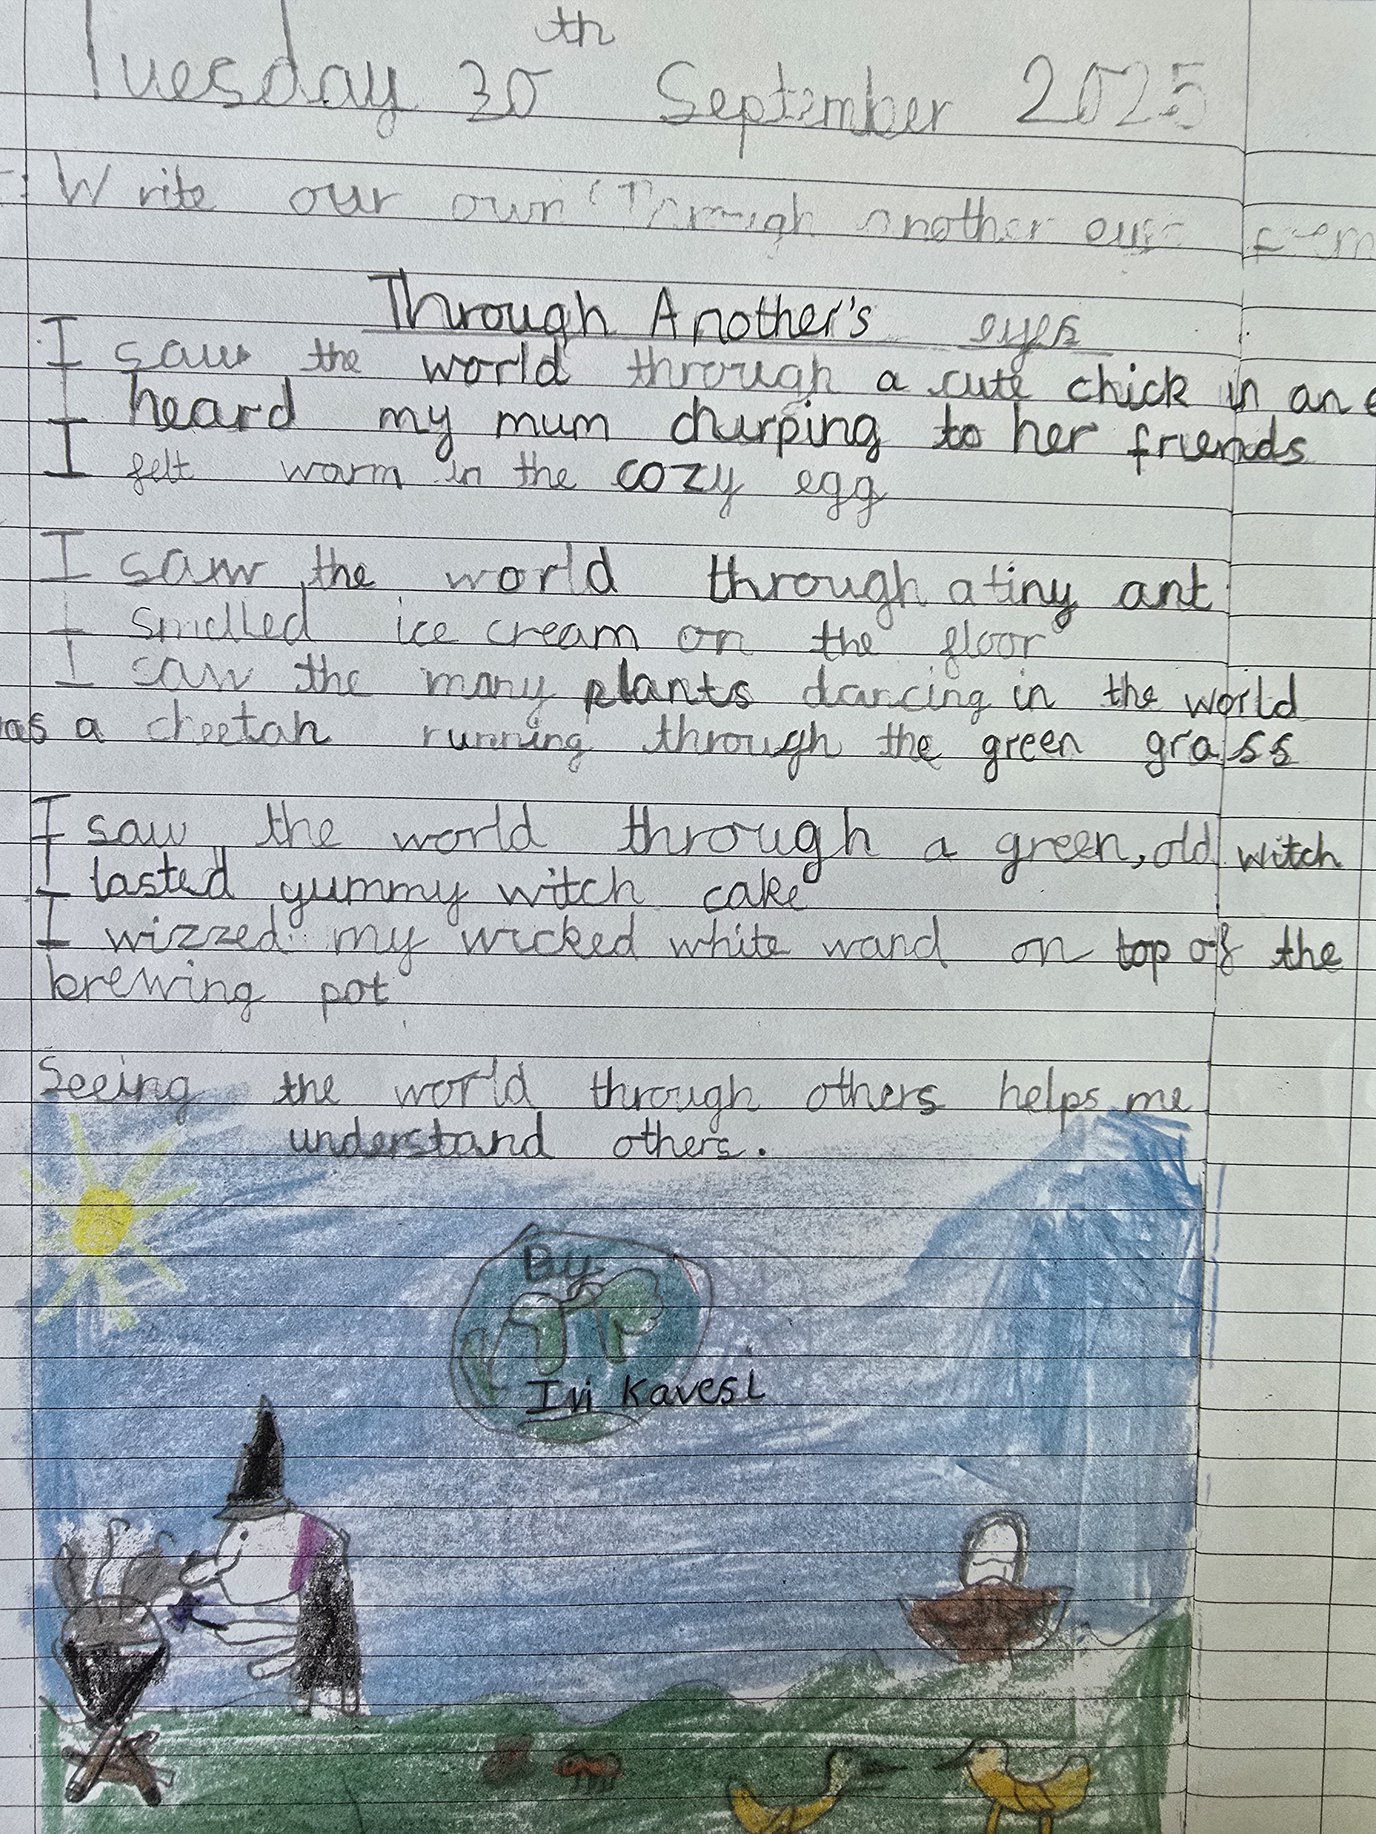 Tuesday 30th September 2025
: Write our own Through another eyes
Through Another's eyes
I saw the world through a cute chick in an
I heard my mum churping to her friends
I felt warm in the cozy egg
I saw the world through a tiny ant
I smelled ice cream on the floor
I saw the many plants dancing in the world
as a cheetah running through the green grass
I saw the world through a green, old witch
I tasted yummy witch cake
I wizzed my wicked white wand on top of the
brewing pot
Seeing the world through others helps me
understand others.
By
Ivi Kavesi